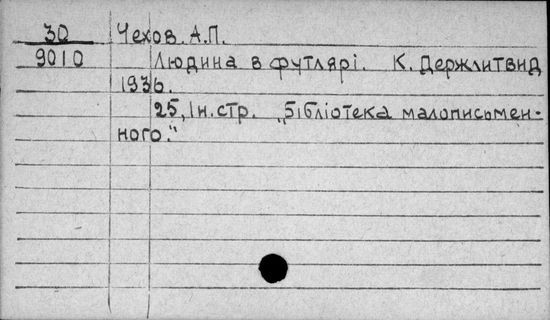 30 Чехов. А.П.
9010 Людина в футлярі. К. Держлітвид
1936.
25, Ін. стр. „Бібліотека малописьмен-
ного."